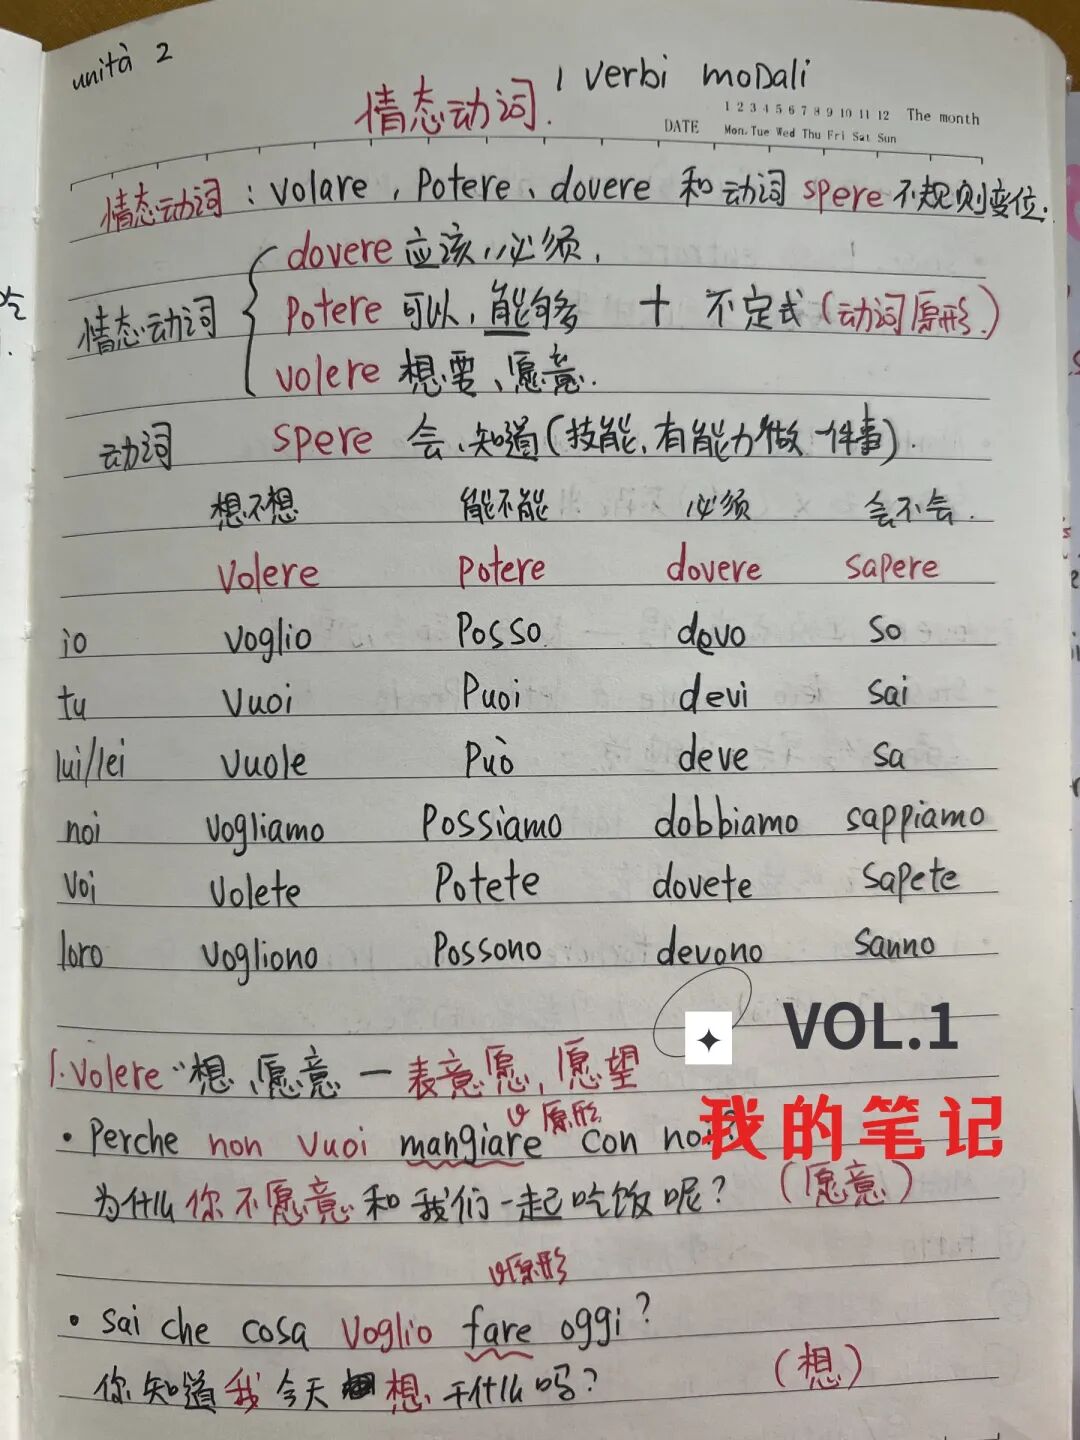 unità 2
I verbi moDali
情态动词.
1 2 3 4 5 6 7 8 9 10 11 12 The month
DATE Mon. Tue Wed Thu Fri Sat Sun
情态动词：volare、Potere、dovere 和动词 spere 不规则变位.
dovere 应该、必须、
情态动词 Potere 可以、能够 + 不定式（动词原形.）
volere 想要、愿意.
动词 spere 会、知道（技能、有能力做一件事）.
想不想 能不能 必须 会不会.
Volere Potere dovere sapere
io voglio Posso devo so
tu vuoi Puoi devi sai
lui/lei vuole Può deve sa
noi vogliamo Possiamo dobbiamo sappiamo
voi volete Potete dovete sapete
loro vogliono Possono devono sanno
VOL.1
1.Volere "想、愿意 — 表意愿，愿望
我的笔记
v原形
• Perche non vuoi mangiare con noi?
为什么你不愿意和我们一起吃饭呢？（愿意）
v原形
• Sai che cosa voglio fare oggi?
你知道我今天想干什么吗？（想）